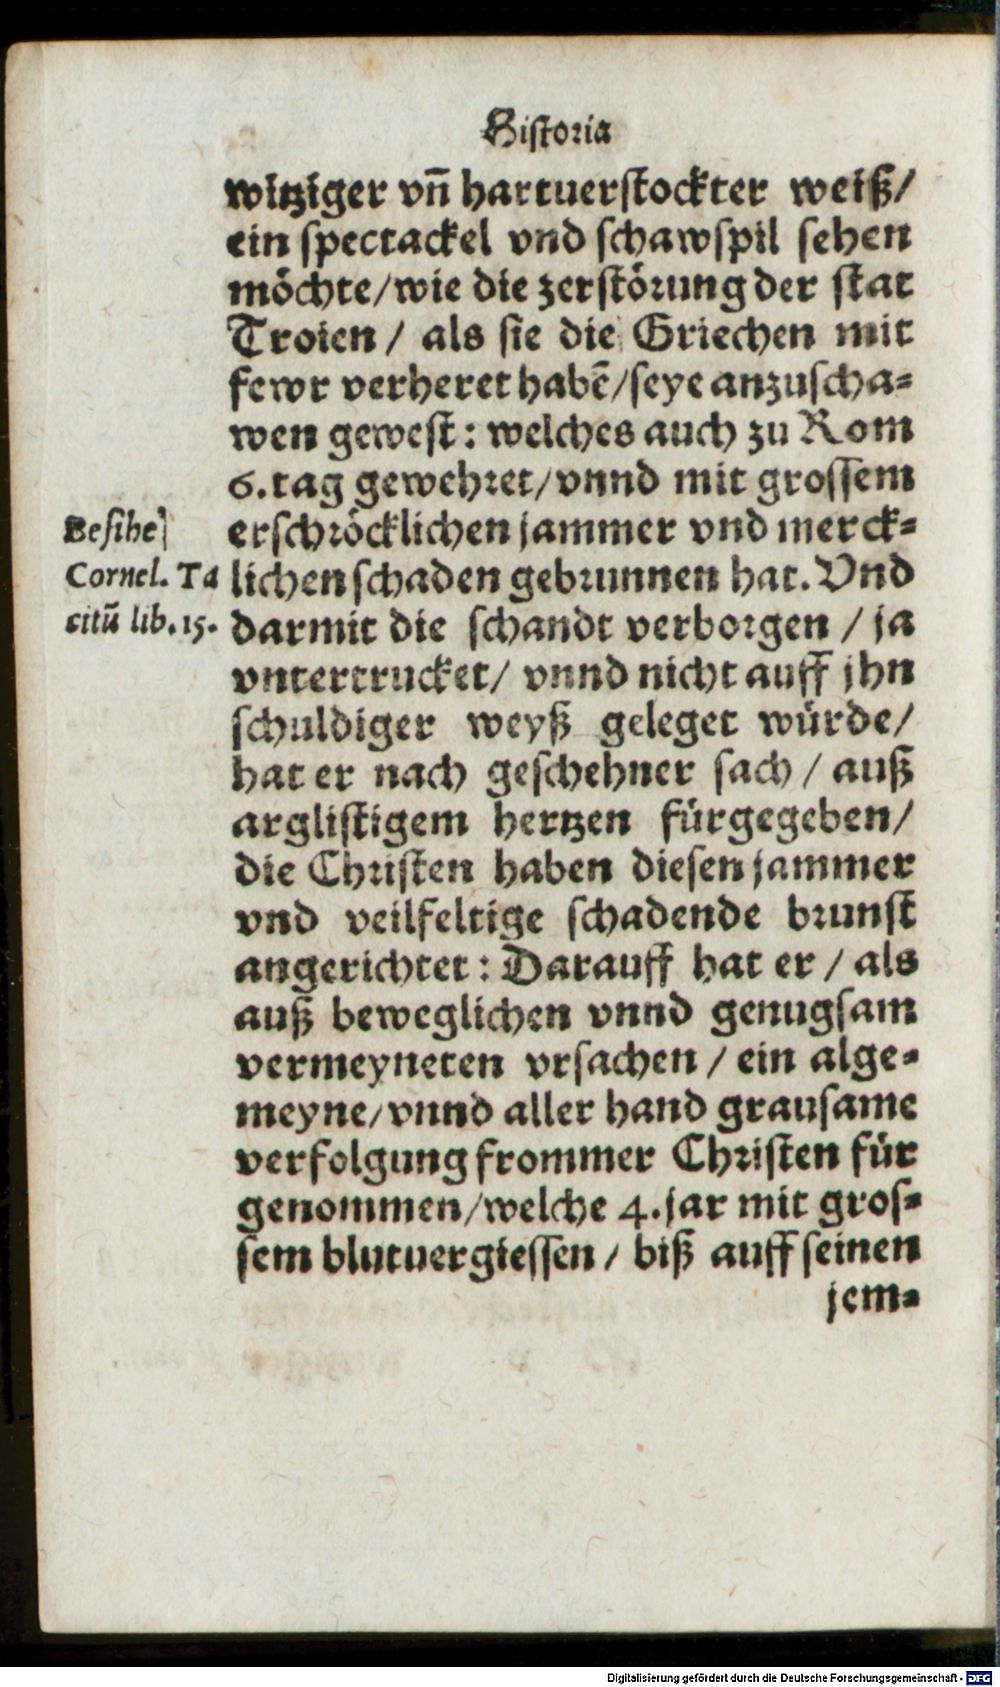 Historia
witziger vn̄ hartuerstockter weiß/
ein spectackel vnd schawspil sehen
möchte/wie die zerstörung der stat
Troien / als sie die Griechen mit
fewr verheret habē/seye anzuscha-
wen gewest: welches auch zu Rom
6.tag gewehret/vnnd mit grossem
erschröcklichen jammer vnd merck-
lichen schaden gebrunnen hat. Vnd
darmit die schandt verborgen / ja
vntertrucket/ vnnd nicht auff jhn
schuldiger weyß geleget würde/
hat er nach geschehner sach / auß
arglistigem hertzen fürgegeben/
die Christen haben diesen jammer
vnd veilfeltige schadende brunst
angerichtet: Darauff hat er / als
auß beweglichen vnnd genugsam
vermeyneten vrsachen / ein alge-
meyne/vnnd aller hand grausame
verfolgung frommer Christen für
genommen/welche 4.jar mit gros-
sem blutuergiessen / biß auff seinen
jem-
Besihe
Cornel. Ta
citū lib.15.
Digitalisierung gefördert durch die Deutsche Forschungsgemeinschaft - DFG